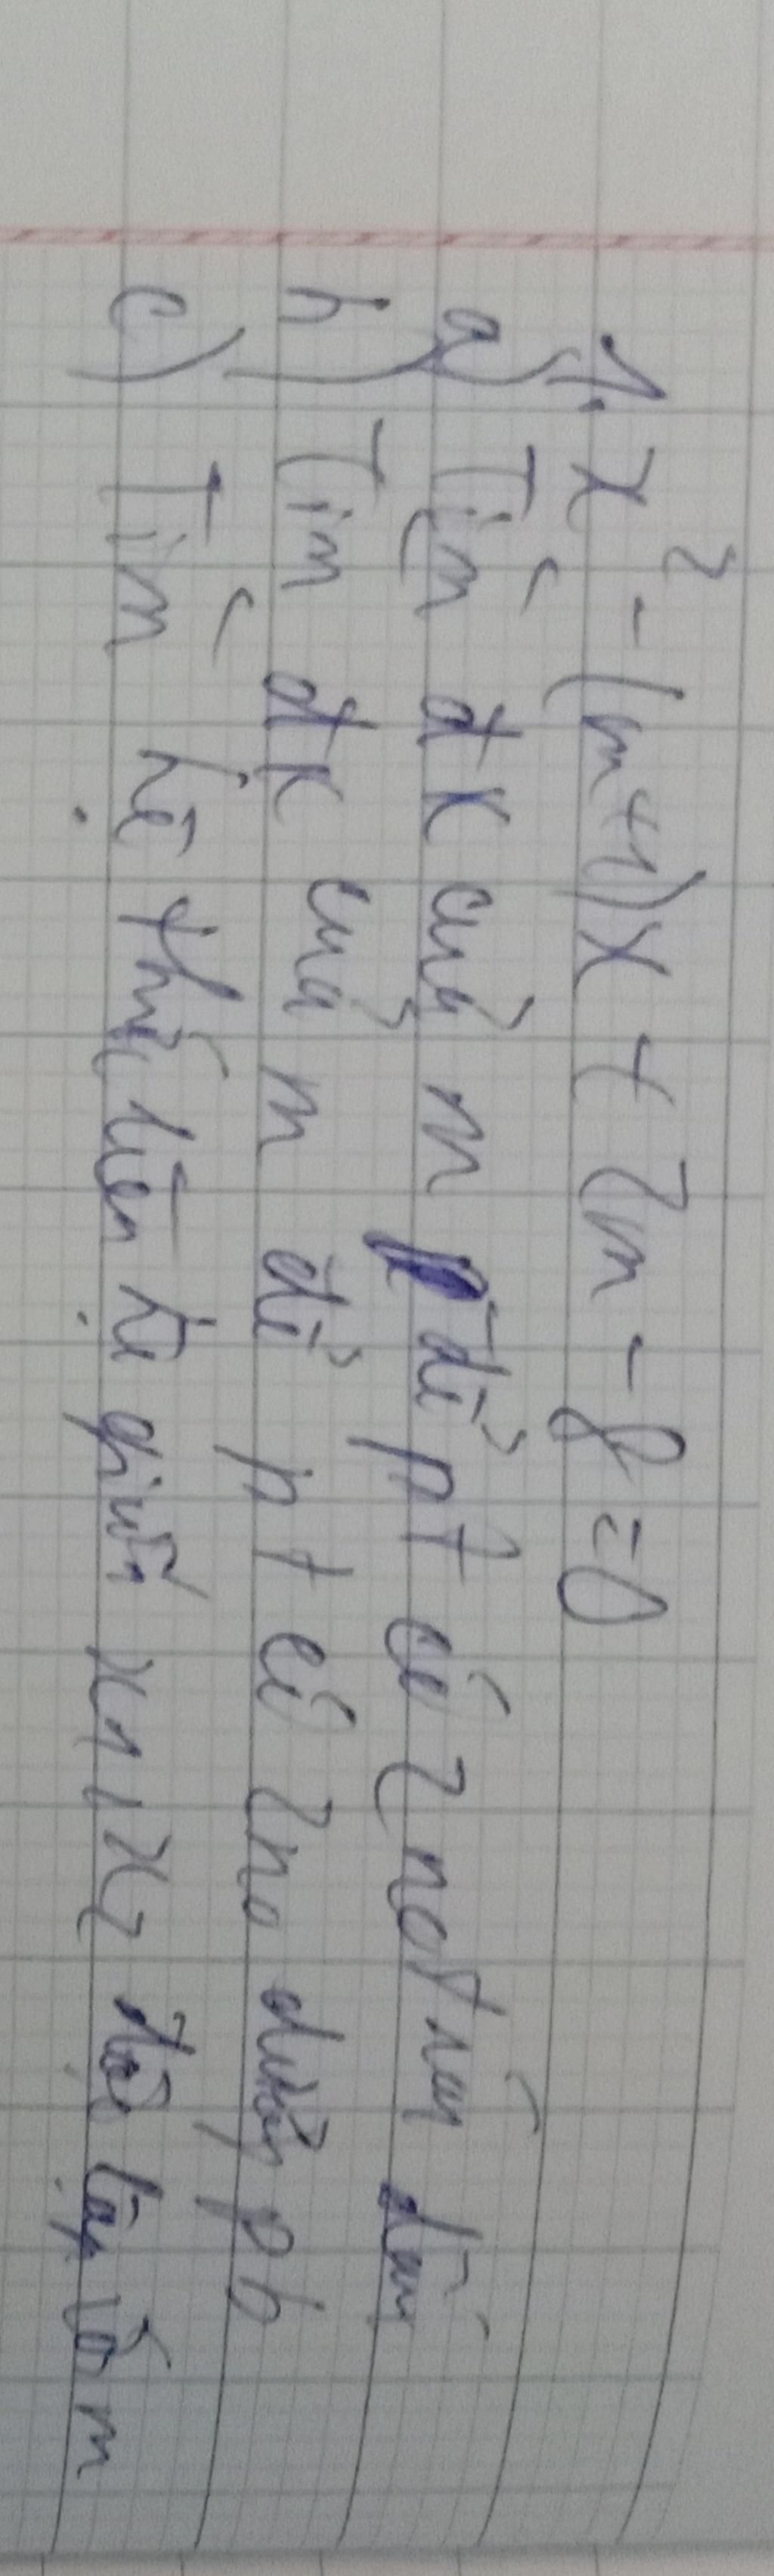 1. x² - (m+1)x + 2m - 8 = 0
a) Tìm đk của m để pt có 2 no trái dấu
b) Tìm đk của m để pt có 2no dương pb
c) Tìm hệ thức liên hệ giữa x1, x2 độc lập với m